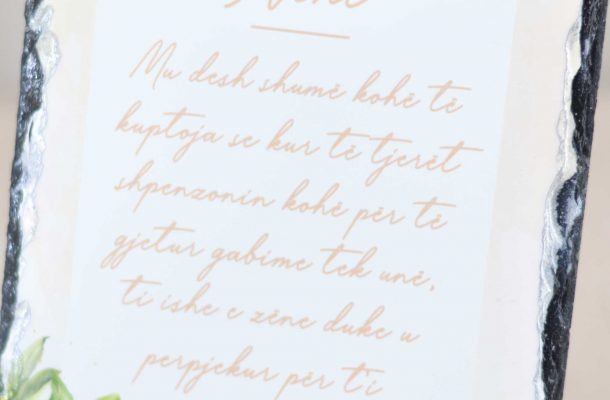 Mu desh shumë kohë të
kuptoja se kur të tjerët
shpenzonin kohë për të
gjetur gabime tek unë,
ti ishe e zëne duke u
perpjekur për t'i